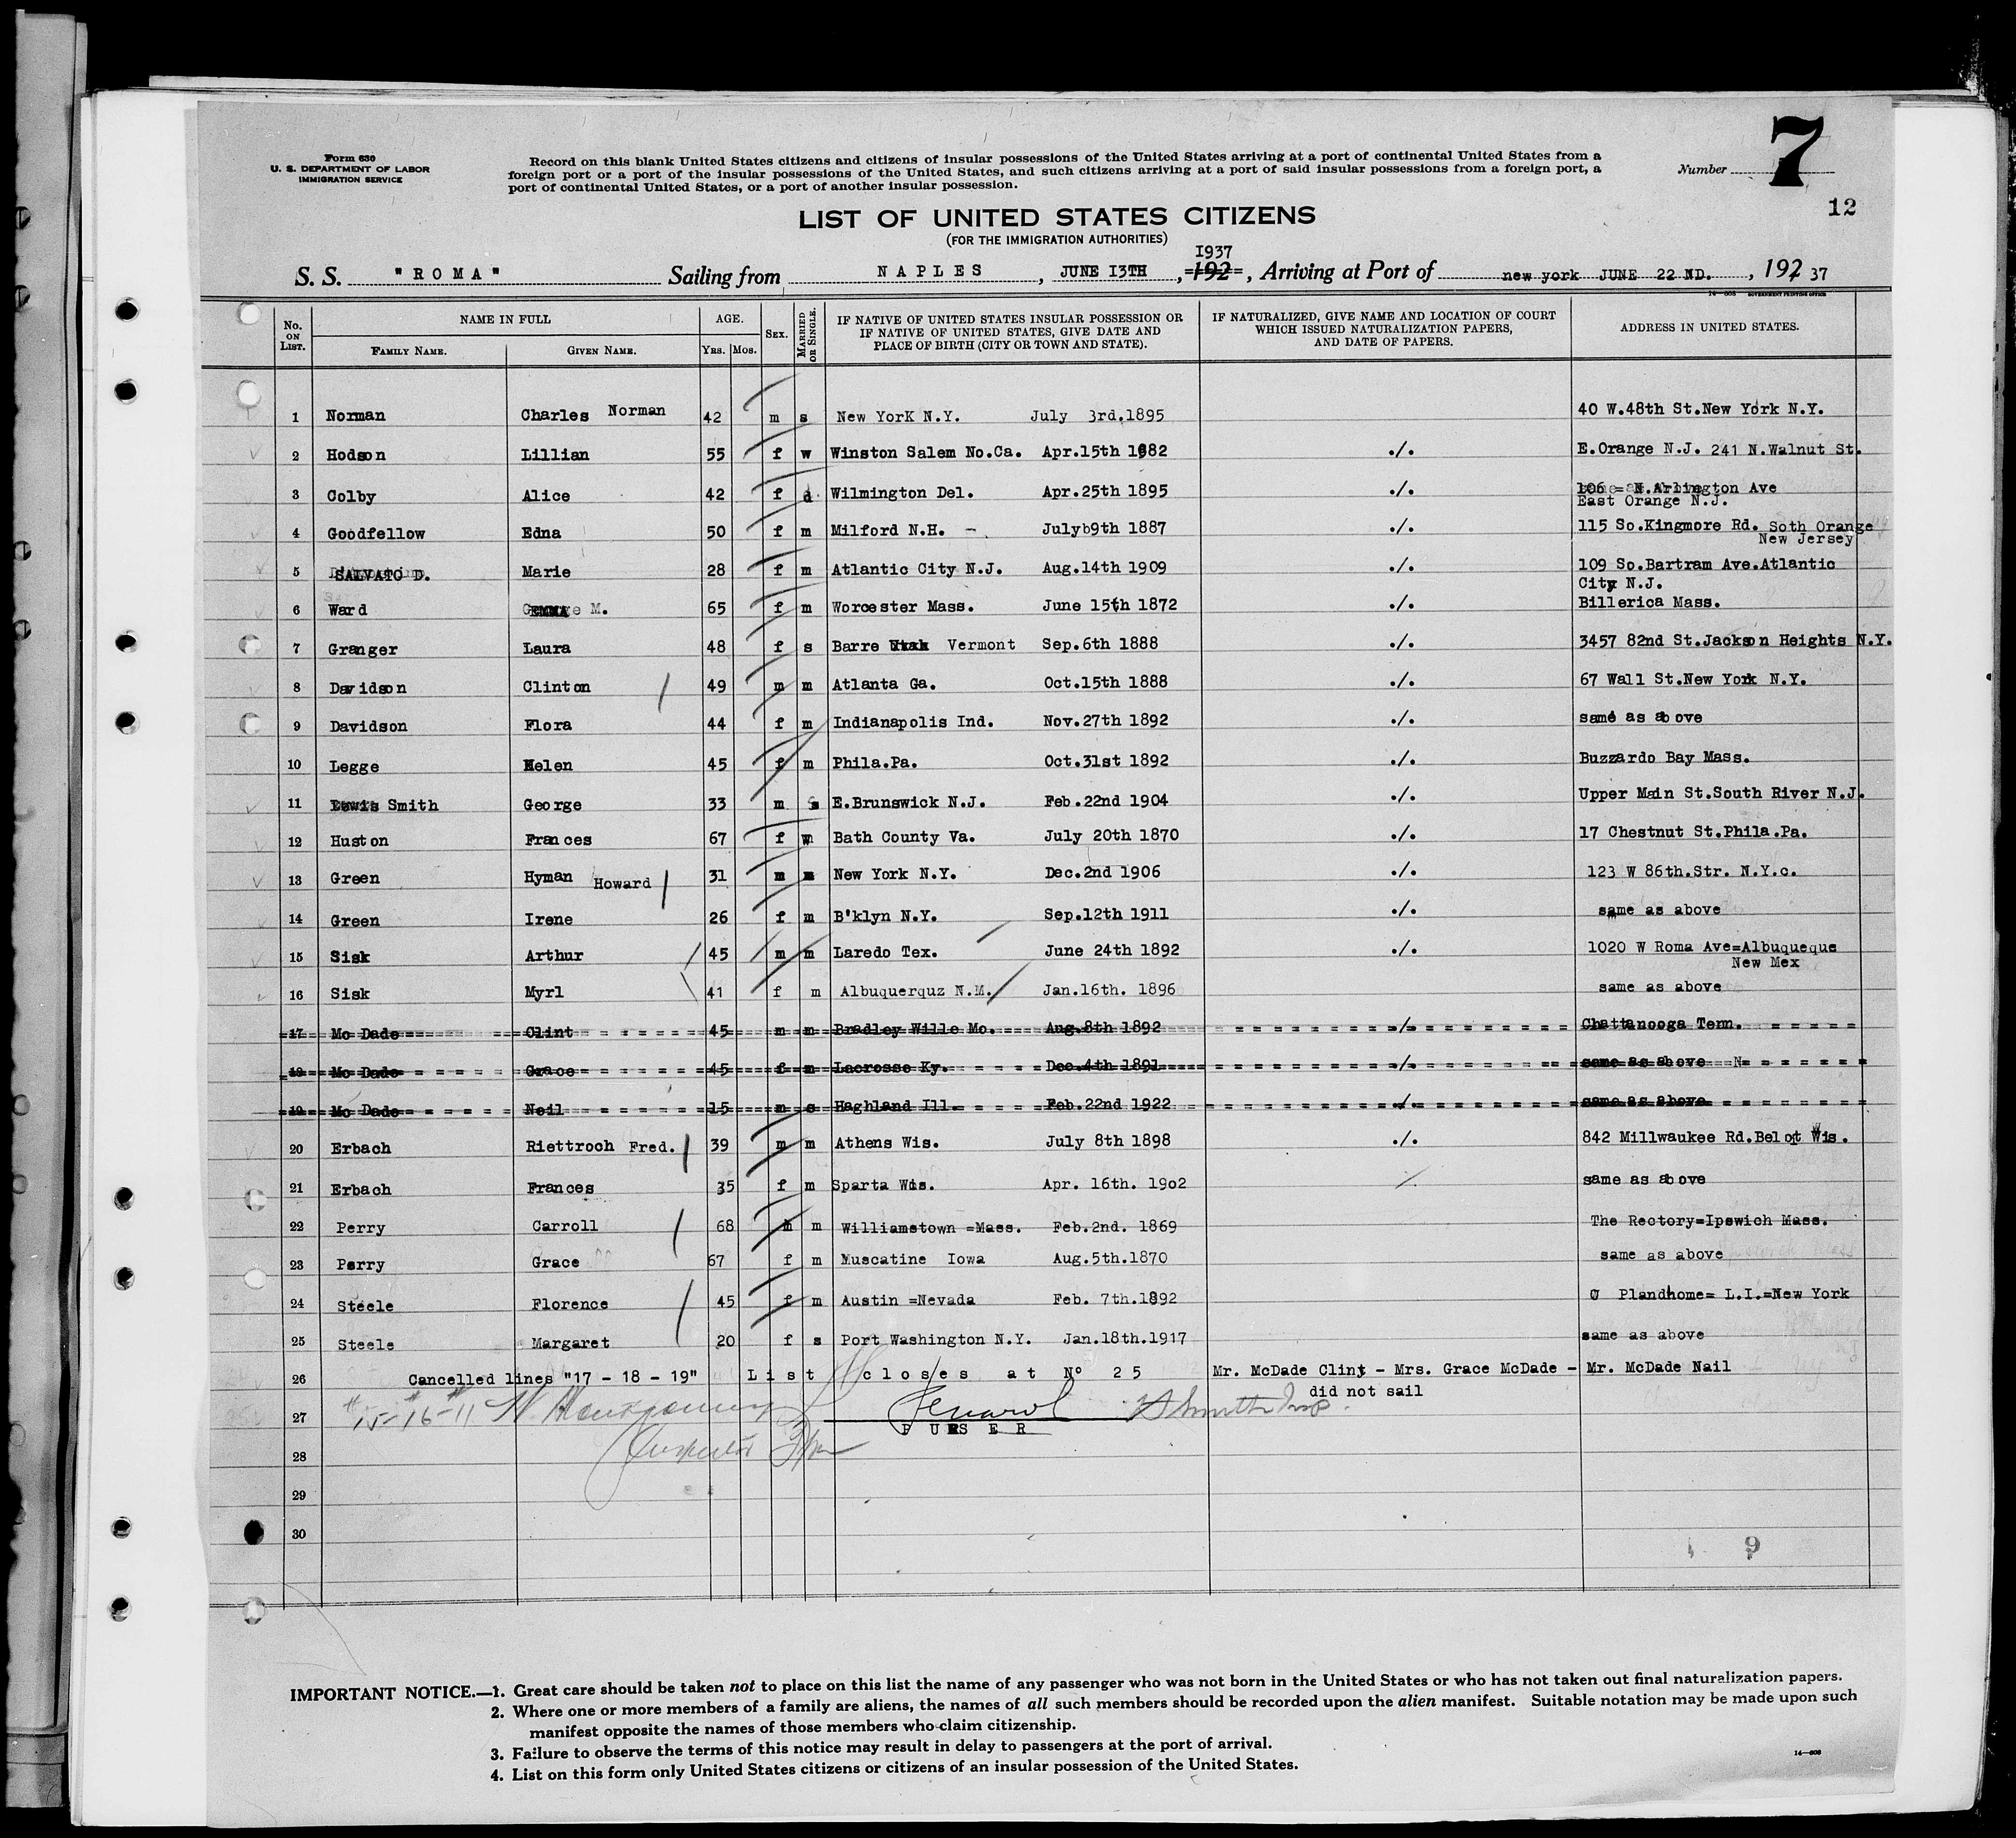 Form 630
U. S. DEPARTMENT OF LABOR
IMMIGRATION SERVICE
Record on this blank United States citizens and citizens of insular possessions of the United States arriving at a port of continental United States from a
foreign port or a port of the insular possessions of the United States, and such citizens arriving at a port of said insular possessions from a foreign port, a
port of continental United States, or a port of another insular possession.
Number 7
12
LIST OF UNITED STATES CITIZENS
(FOR THE IMMIGRATION AUTHORITIES)
I937
S. S. "ROMA" Sailing from NAPLES, JUNE I3TH, 192=, Arriving at Port of new york JUNE 22 ND., 192 37
14—608 GOVERNMENT PRINTING OFFICE
No. ON LIST. NAME IN FULL FAMILY NAME. GIVEN NAME. AGE. YRS. MOS. SEX. MARRIED OR SINGLE. IF NATIVE OF UNITED STATES INSULAR POSSESSION OR IF NATIVE OF UNITED STATES, GIVE DATE AND PLACE OF BIRTH (CITY OR TOWN AND STATE). IF NATURALIZED, GIVE NAME AND LOCATION OF COURT WHICH ISSUED NATURALIZATION PAPERS, AND DATE OF PAPERS. ADDRESS IN UNITED STATES.
1 Norman Charles Norman 42 m s New YorK N.Y. July 3rd.1895 40 W.48th St.New York N.Y.
2 Hodson Lillian 55 f w Winston Salem No.Ca. Apr.15th 1882 ./. E.Orange N.J. 241 N.Walnut St.
3 Colby Alice 42 f d Wilmington Del. Apr.25th 1895 ./. 106 = N.Arlington Ave
East Orange N.J.
4 Goodfellow Edna 50 f m Milford N.H. - Julyb9th 1887 ./. 115 So.Kingmore Rd. Soth Orange
New Jersey
5 SALVATO D. Marie 28 f m Atlantic City N.J. Aug.14th 1909 ./. 109 So.Bartram Ave.Atlantic
City N.J.
6 Ward EMMA M. 65 f m Worcester Mass. June 15th 1872 ./. Billerica Mass.
7 Granger Laura 48 f s Barre Utah Vermont Sep.6th 1888 ./. 3457 82nd St.Jackson Heights N.Y.
8 Davidson Clinton 49 m m Atlanta Ga. Oct.15th 1888 ./. 67 Wall St.New York N.Y.
9 Davidson Flora 44 f m Indianapolis Ind. Nov.27th 1892 ./. same as above
10 Legge Helen 45 f m Phila.Pa. Oct.31st 1892 ./. Buzzardo Bay Mass.
11 Lewis Smith George 33 m s E.Brunswick N.J. Feb.22nd 1904 ./. Upper Main St.South River N.J.
12 Huston Frances 67 f w Bath County Va. July 20th 1870 ./. 17 Chestnut St.Phila.Pa.
13 Green Hyman Howard 31 m m New York N.Y. Dec.2nd 1906 ./. 123 W 86th.Str. N.Y.c.
14 Green Irene 26 f m B'klyn N.Y. Sep.12th 1911 ./. same as above
15 Sisk Arthur 45 m m Laredo Tex. June 24th 1892 ./. 1020 W Roma Ave=Albuqueque
New Mex
16 Sisk Myrl 41 f m Albuquerquz N.M. Jan.16th. 1896 same as above
17 Mc Dade Clint 45 m m Bradley Wille Mo. Aug.8th 1892 ./. Chattanooga Tenn.
18 Mc Dade Grace 45 f m Lacrosse Ky. Dec.4th 1891 ./. same as above N
19 Mc Dade Neil 15 m s Haghland Ill. Feb.22nd 1922 ./. same as above
20 Erbach Riettroch Fred. 39 m m Athens Wis. July 8th 1898 ./. 842 Millwaukee Rd.Beloit Wis.
21 Erbach Frances 35 f m Sparta Wis. Apr. 16th. 19o2 ./. same as above
22 Perry Carroll 68 m m Williamstown =Mass. Feb.2nd. 1869 The Rectory=Ipswich Mass.
23 Perry Grace 67 f m Muscatine Iowa Aug.5th.1870 same as above
24 Steele Florence 45 f m Austin =Nevada Feb. 7th.1892 Plandhome= L.I.=New York
25 Steele Margaret 20 f s Port Washington N.Y. Jan.18th.1917 same as above
26 Cancelled lines "17 - 18 - 19" List closes at N° 25 Mr. McDade Clint - Mrs. Grace McDade - Mr. McDade Nail
did not sail
27 #15-#16-#11 W. Montgomery H Smith Insp.
PURSER
Inspector
28
29
30
9
IMPORTANT NOTICE.—1. Great care should be taken not to place on this list the name of any passenger who was not born in the United States or who has not taken out final naturalization papers.
2. Where one or more members of a family are aliens, the names of all such members should be recorded upon the alien manifest. Suitable notation may be made upon such
manifest opposite the names of those members who claim citizenship.
3. Failure to observe the terms of this notice may result in delay to passengers at the port of arrival.
14—608
4. List on this form only United States citizens or citizens of an insular possession of the United States.